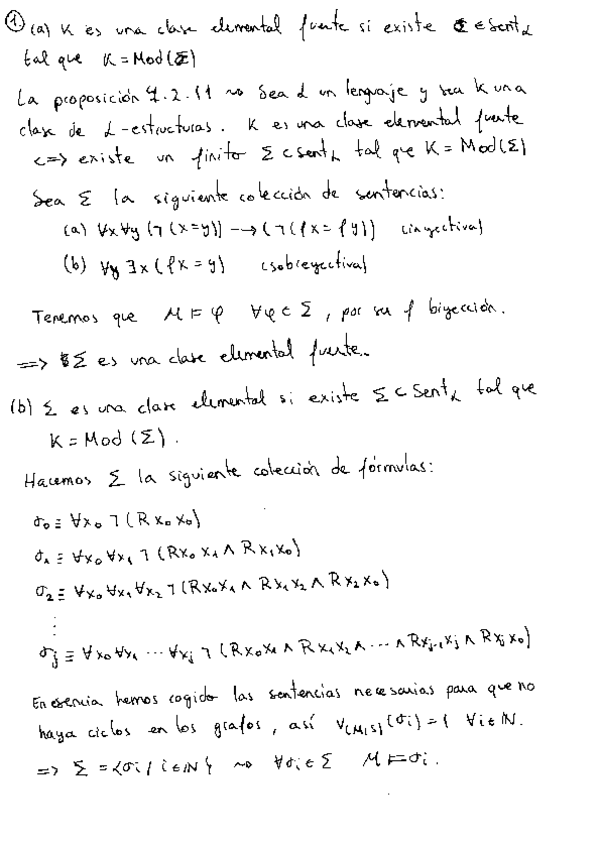 ① (a) K es una clase elemental fuerte si existe σ ∈ Sent_L
tal que K = Mod(Σ)
La proposición 4.2.11 ~> Sea L un lenguaje y sea K una
clase de L-estructuras. K es una clase elemental fuerte
<=> existe un finito Σ ⊂ Sent_L tal que K = Mod(Σ)
Sea Σ la siguiente colección de sentencias:
(a) ∀x∀y (¬(x=y)) → (¬(fx = fy)) (inyectiva)
(b) ∀y ∃x (fx = y) (sobreyectiva)
Tenemos que M ⊨ φ ∀φ ∈ Σ, por ser f biyección.
=> Σ es una clase elemental fuerte.
(b) Σ es una clase elemental si existe Σ ⊂ Sent_L tal que
K = Mod (Σ).
Hacemos Σ la siguiente colección de fórmulas:
σ₀ ≡ ∀x₀ ¬(R x₀ x₀)
σ₁ ≡ ∀x₀ ∀x₁ ¬(Rx₀x₁ ∧ Rx₁x₀)
σ₂ ≡ ∀x₀ ∀x₁ ∀x₂ ¬(Rx₀x₁ ∧ Rx₁x₂ ∧ Rx₂x₀)
⋮
σⱼ ≡ ∀x₀ ∀x₁ ··· ∀xⱼ ¬(Rx₀x₁ ∧ Rx₁x₂ ∧ ··· ∧ Rxⱼ₋₁xⱼ ∧ Rxⱼx₀)
En esencia hemos cogido las sentencias necesarias para que no
haya ciclos en los grafos, así V_(M,S)(σᵢ) = 1 ∀i ∈ ℕ.
=> Σ = {σᵢ / i ∈ ℕ} ~> ∀σᵢ ∈ Σ M ⊨ σᵢ.